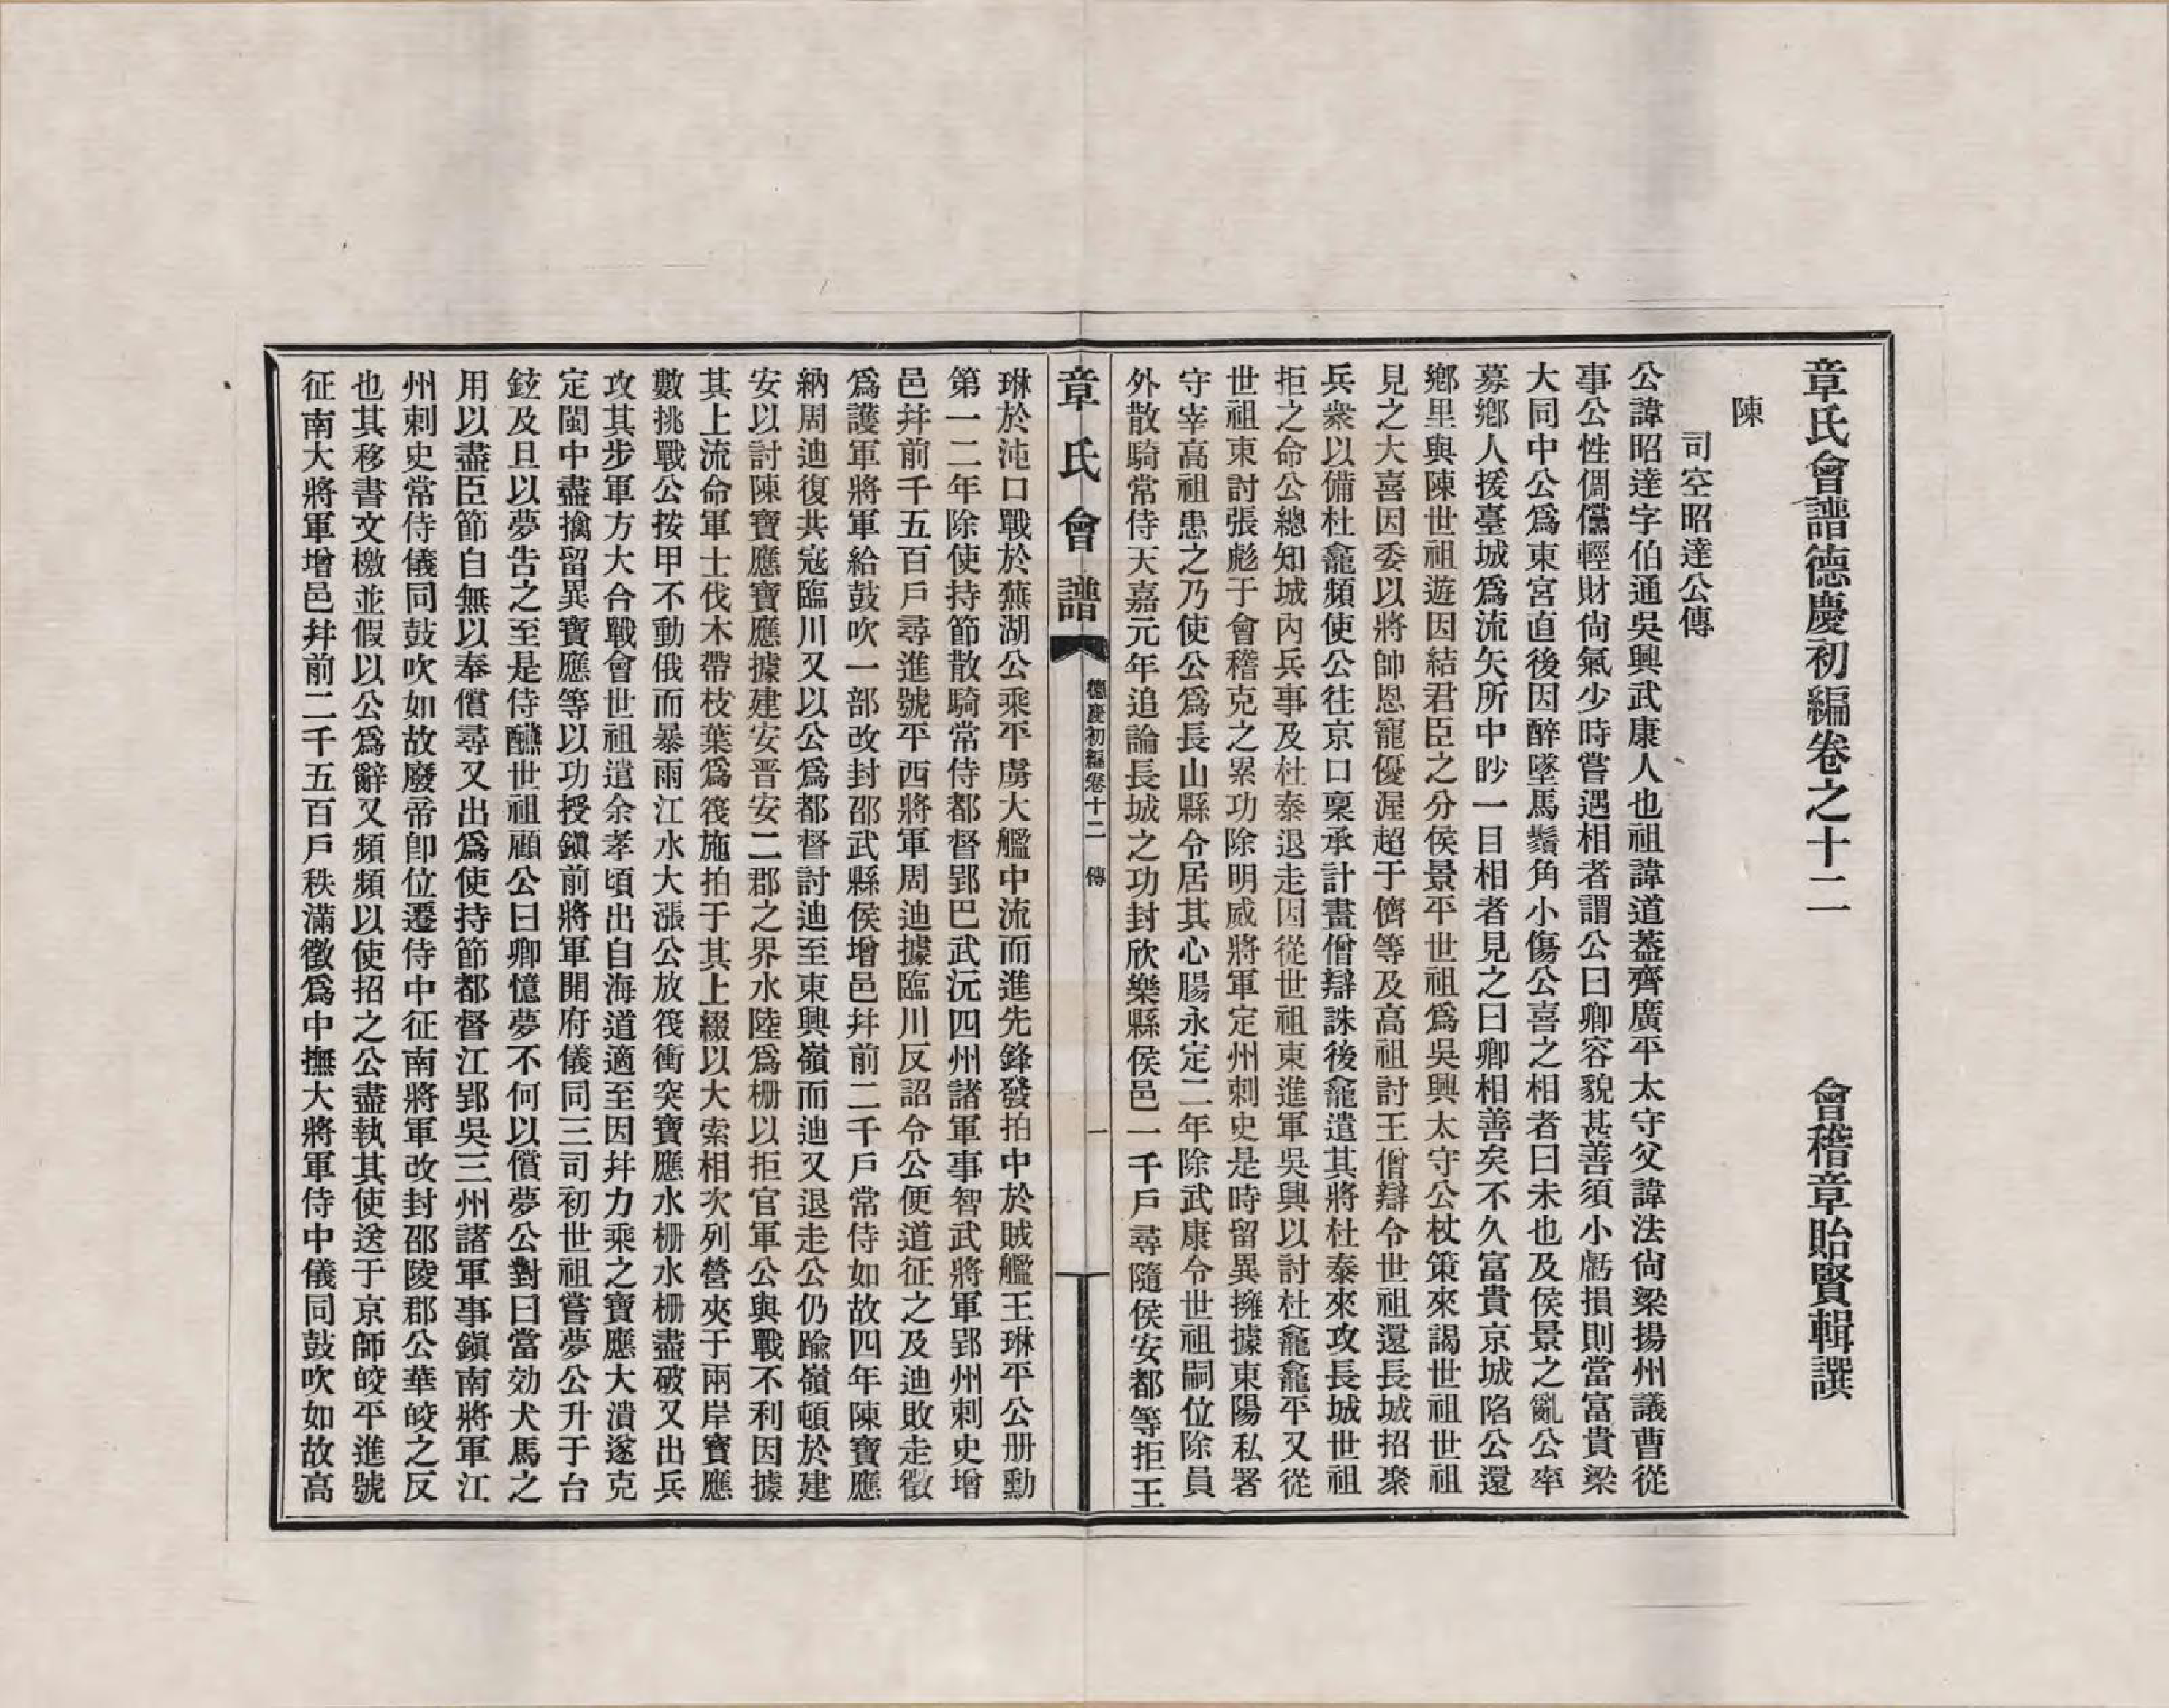 章氏會譜德慶初編卷之十二
會稽章貽賢輯譔
陳
司空昭達公傳
公諱昭達字伯通吳興武康人也祖諱道葢齊廣平太守父諱法尙梁揚州議曹從
事公性倜儻輕財尙氣少時嘗遇相者謂公曰卿容貌甚善須小虧損則當富貴梁
大同中公爲東宮直後因醉墜馬鬢角小傷公喜之相者曰未也及侯景之亂公率
募鄉人援臺城爲流矢所中眇一目相者見之曰卿相善矣不久富貴京城陷公還
鄉里與陳世祖遊因結君臣之分侯景平世祖爲吳興太守公杖策來謁世祖世祖
見之大喜因委以將帥恩寵優渥超于儕等及高祖討王僧辯令世祖還長城招聚
兵衆以備杜龕頻使公往京口稟承計畫僧辯誅後龕遣其將杜泰來攻長城世祖
拒之命公總知城內兵事及杜泰退走因從世祖東進軍吳興以討杜龕龕平又從
世祖東討張彪于會稽克之累功除明威將軍定州刺史是時留異擁據東陽私署
守宰高祖患之乃使公爲長山縣令居其心腸永定二年除武康令世祖嗣位除員
外散騎常侍天嘉元年追論長城之功封欣樂縣侯邑一千戶尋隨侯安都等拒王
章氏會譜
德慶初編卷十二　傳
一
琳於沌口戰於蕪湖公乘平虜大艦中流而進先鋒發拍中於賊艦王琳平公册勳
第一二年除使持節散騎常侍都督郢巴武沅四州諸軍事智武將軍郢州刺史增
邑幷前千五百戶尋進號平西將軍周迪據臨川反詔令公便道征之及迪敗走徵
爲護軍將軍給鼓吹一部改封邵武縣侯增邑幷前二千戶常侍如故四年陳寶應
納周迪復共寇臨川又以公爲都督討迪至東興嶺而迪又退走公仍踰嶺頓於建
安以討陳寶應寶應據建安晋安二郡之界水陸爲栅以拒官軍公與戰不利因據
其上流命軍士伐木帶枝葉爲筏施拍于其上綴以大索相次列營夾于兩岸寶應
數挑戰公按甲不動俄而暴雨江水大漲公放筏衝突寶應水栅水栅盡破又出兵
攻其步軍方大合戰會世祖遣余孝頃出自海道適至因幷力乘之寶應大潰遂克
定閩中盡擒留異寶應等以功授鎭前將軍開府儀同三司初世祖嘗夢公升于台
鉉及旦以夢告之至是侍醼世祖顧公曰卿憶夢不何以償夢公對曰當効犬馬之
用以盡臣節自無以奉償尋又出爲使持節都督江郢吳三州諸軍事鎭南將軍江
州刺史常侍儀同鼓吹如故廢帝卽位遷侍中征南將軍改封邵陵郡公華皎之反
也其移書文檄並假以公爲辭又頻頻以使招之公盡執其使送于京師皎平進號
征南大將軍增邑幷前二千五百戶秩滿徵爲中撫大將軍侍中儀同鼓吹如故高